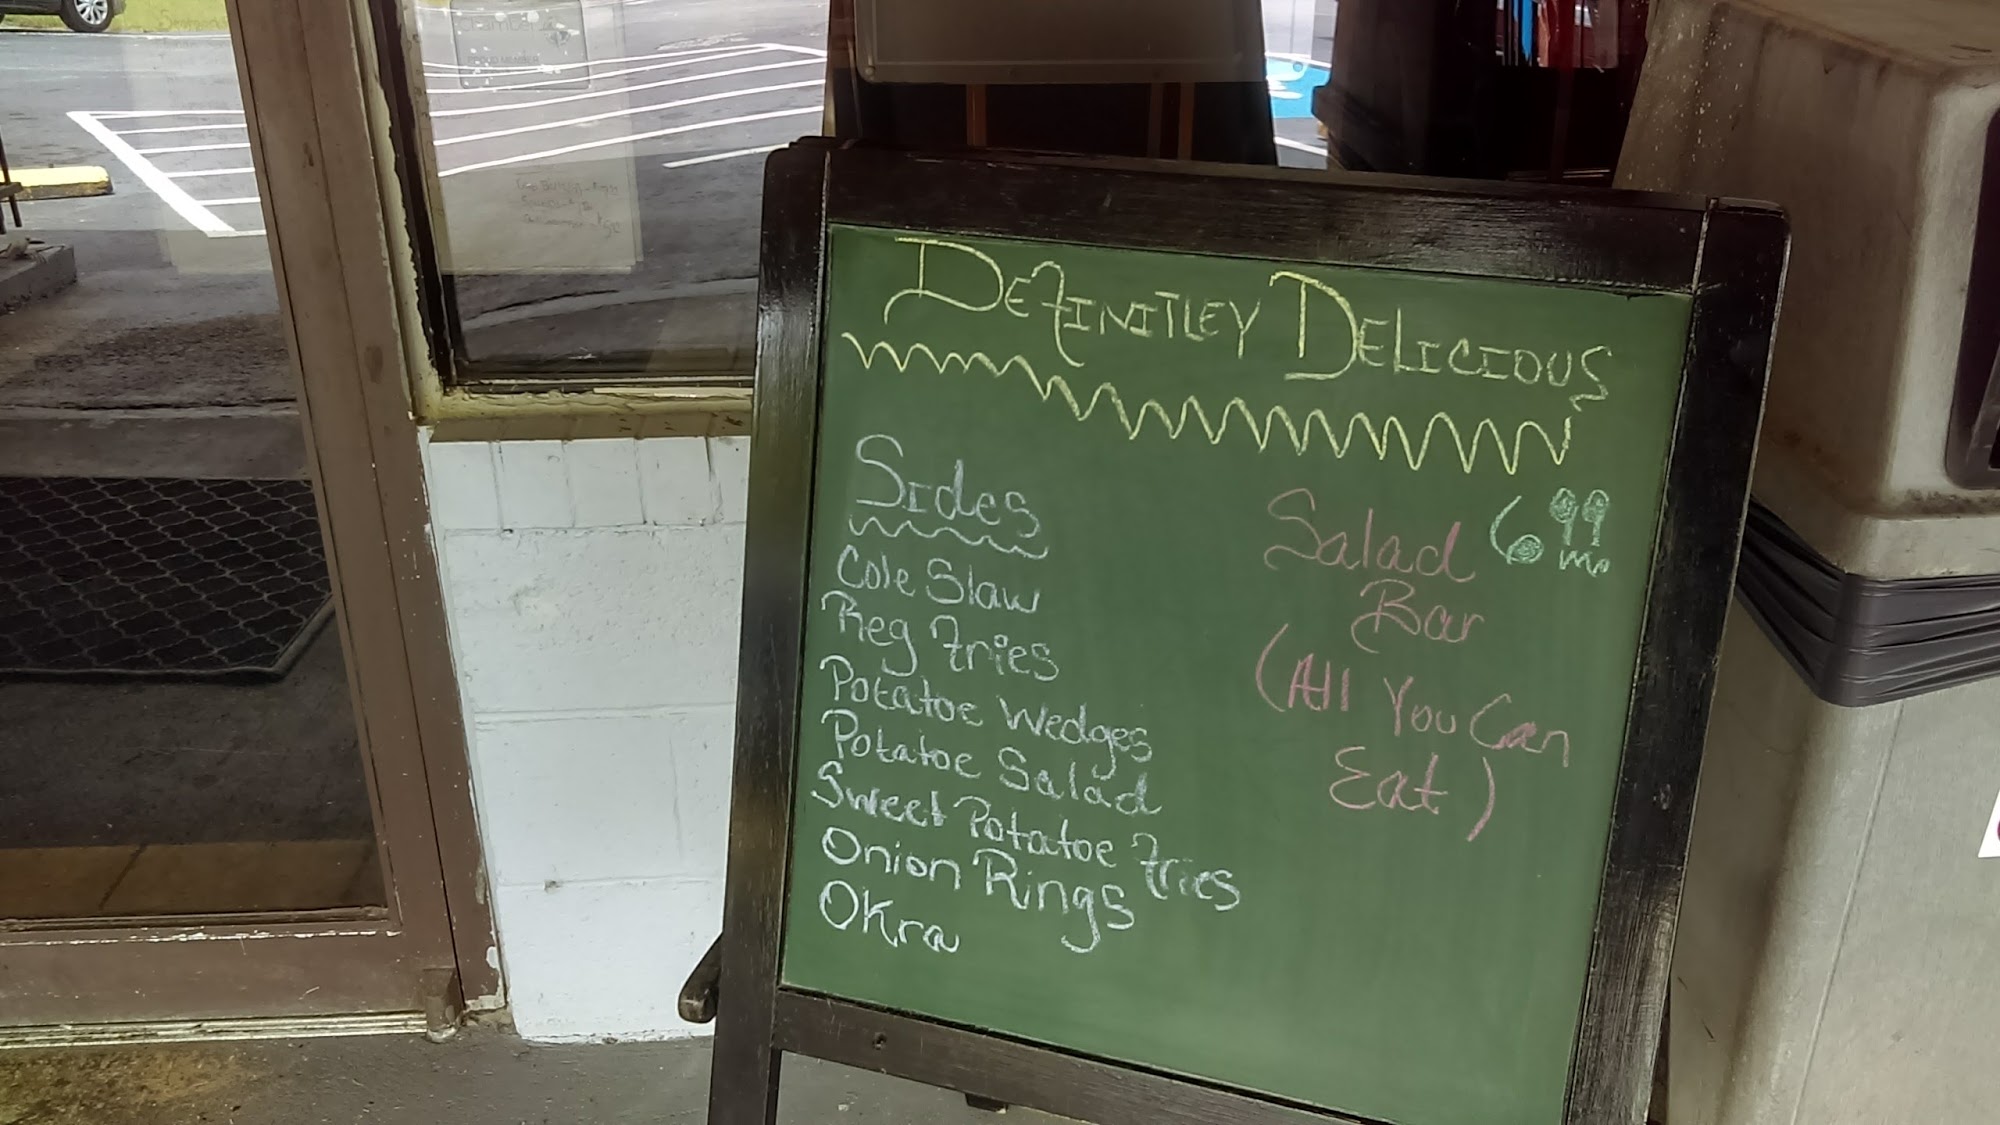 DEFINITLEY DELICIOUS
Sides
Cole Slaw
Reg Fries
Potatoe Wedges
Potatoe Salad
Sweet Potatoe Fries
Onion Rings
Okra
Salad 6 99
Bar
(All You Can
Eat)